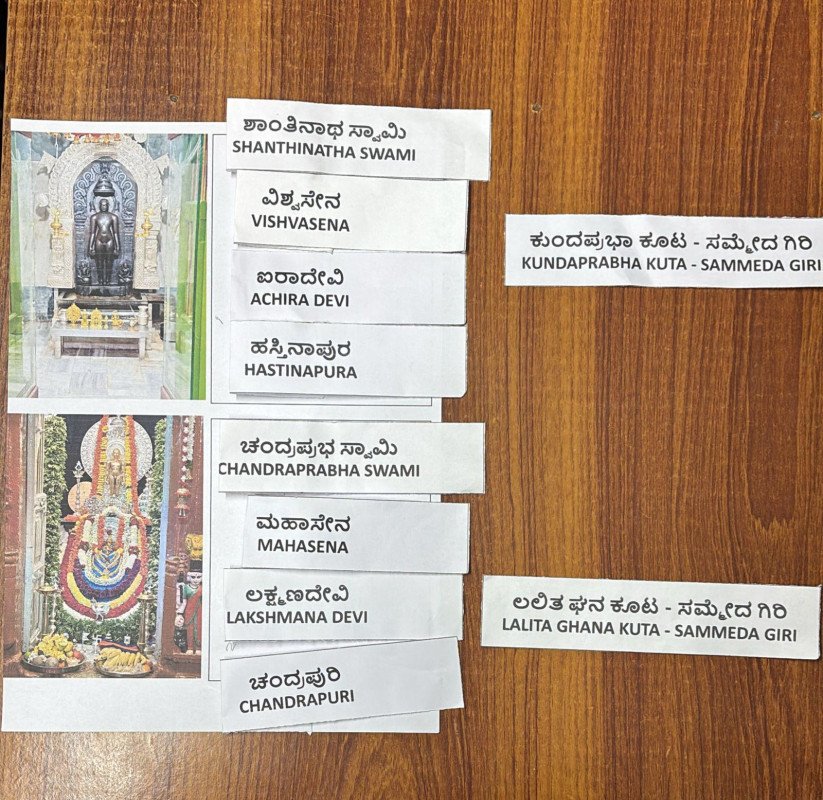 ಶಾಂತಿನಾಥ ಸ್ವಾಮಿ
SHANTHINATHA SWAMI
ವಿಶ್ವಸೇನ
VISHVASENA
ಐರಾದೇವಿ
ACHIRA DEVI
ಹಸ್ತಿನಾಪುರ
HASTINAPURA
ಕುಂದಪ್ರಭಾ ಕೂಟ - ಸಮ್ಮೇದ ಗಿರಿ
KUNDAPRABHA KUTA - SAMMEDA GIRI
ಚಂದ್ರಪ್ರಭ ಸ್ವಾಮಿ
CHANDRAPRABHA SWAMI
ಮಹಾಸೇನ
MAHASENA
ಲಕ್ಷ್ಮಣದೇವಿ
LAKSHMANA DEVI
ಚಂದ್ರಪುರಿ
CHANDRAPURI
ಲಲಿತ ಘನ ಕೂಟ - ಸಮ್ಮೇದ ಗಿರಿ
LALITA GHANA KUTA - SAMMEDA GIRI